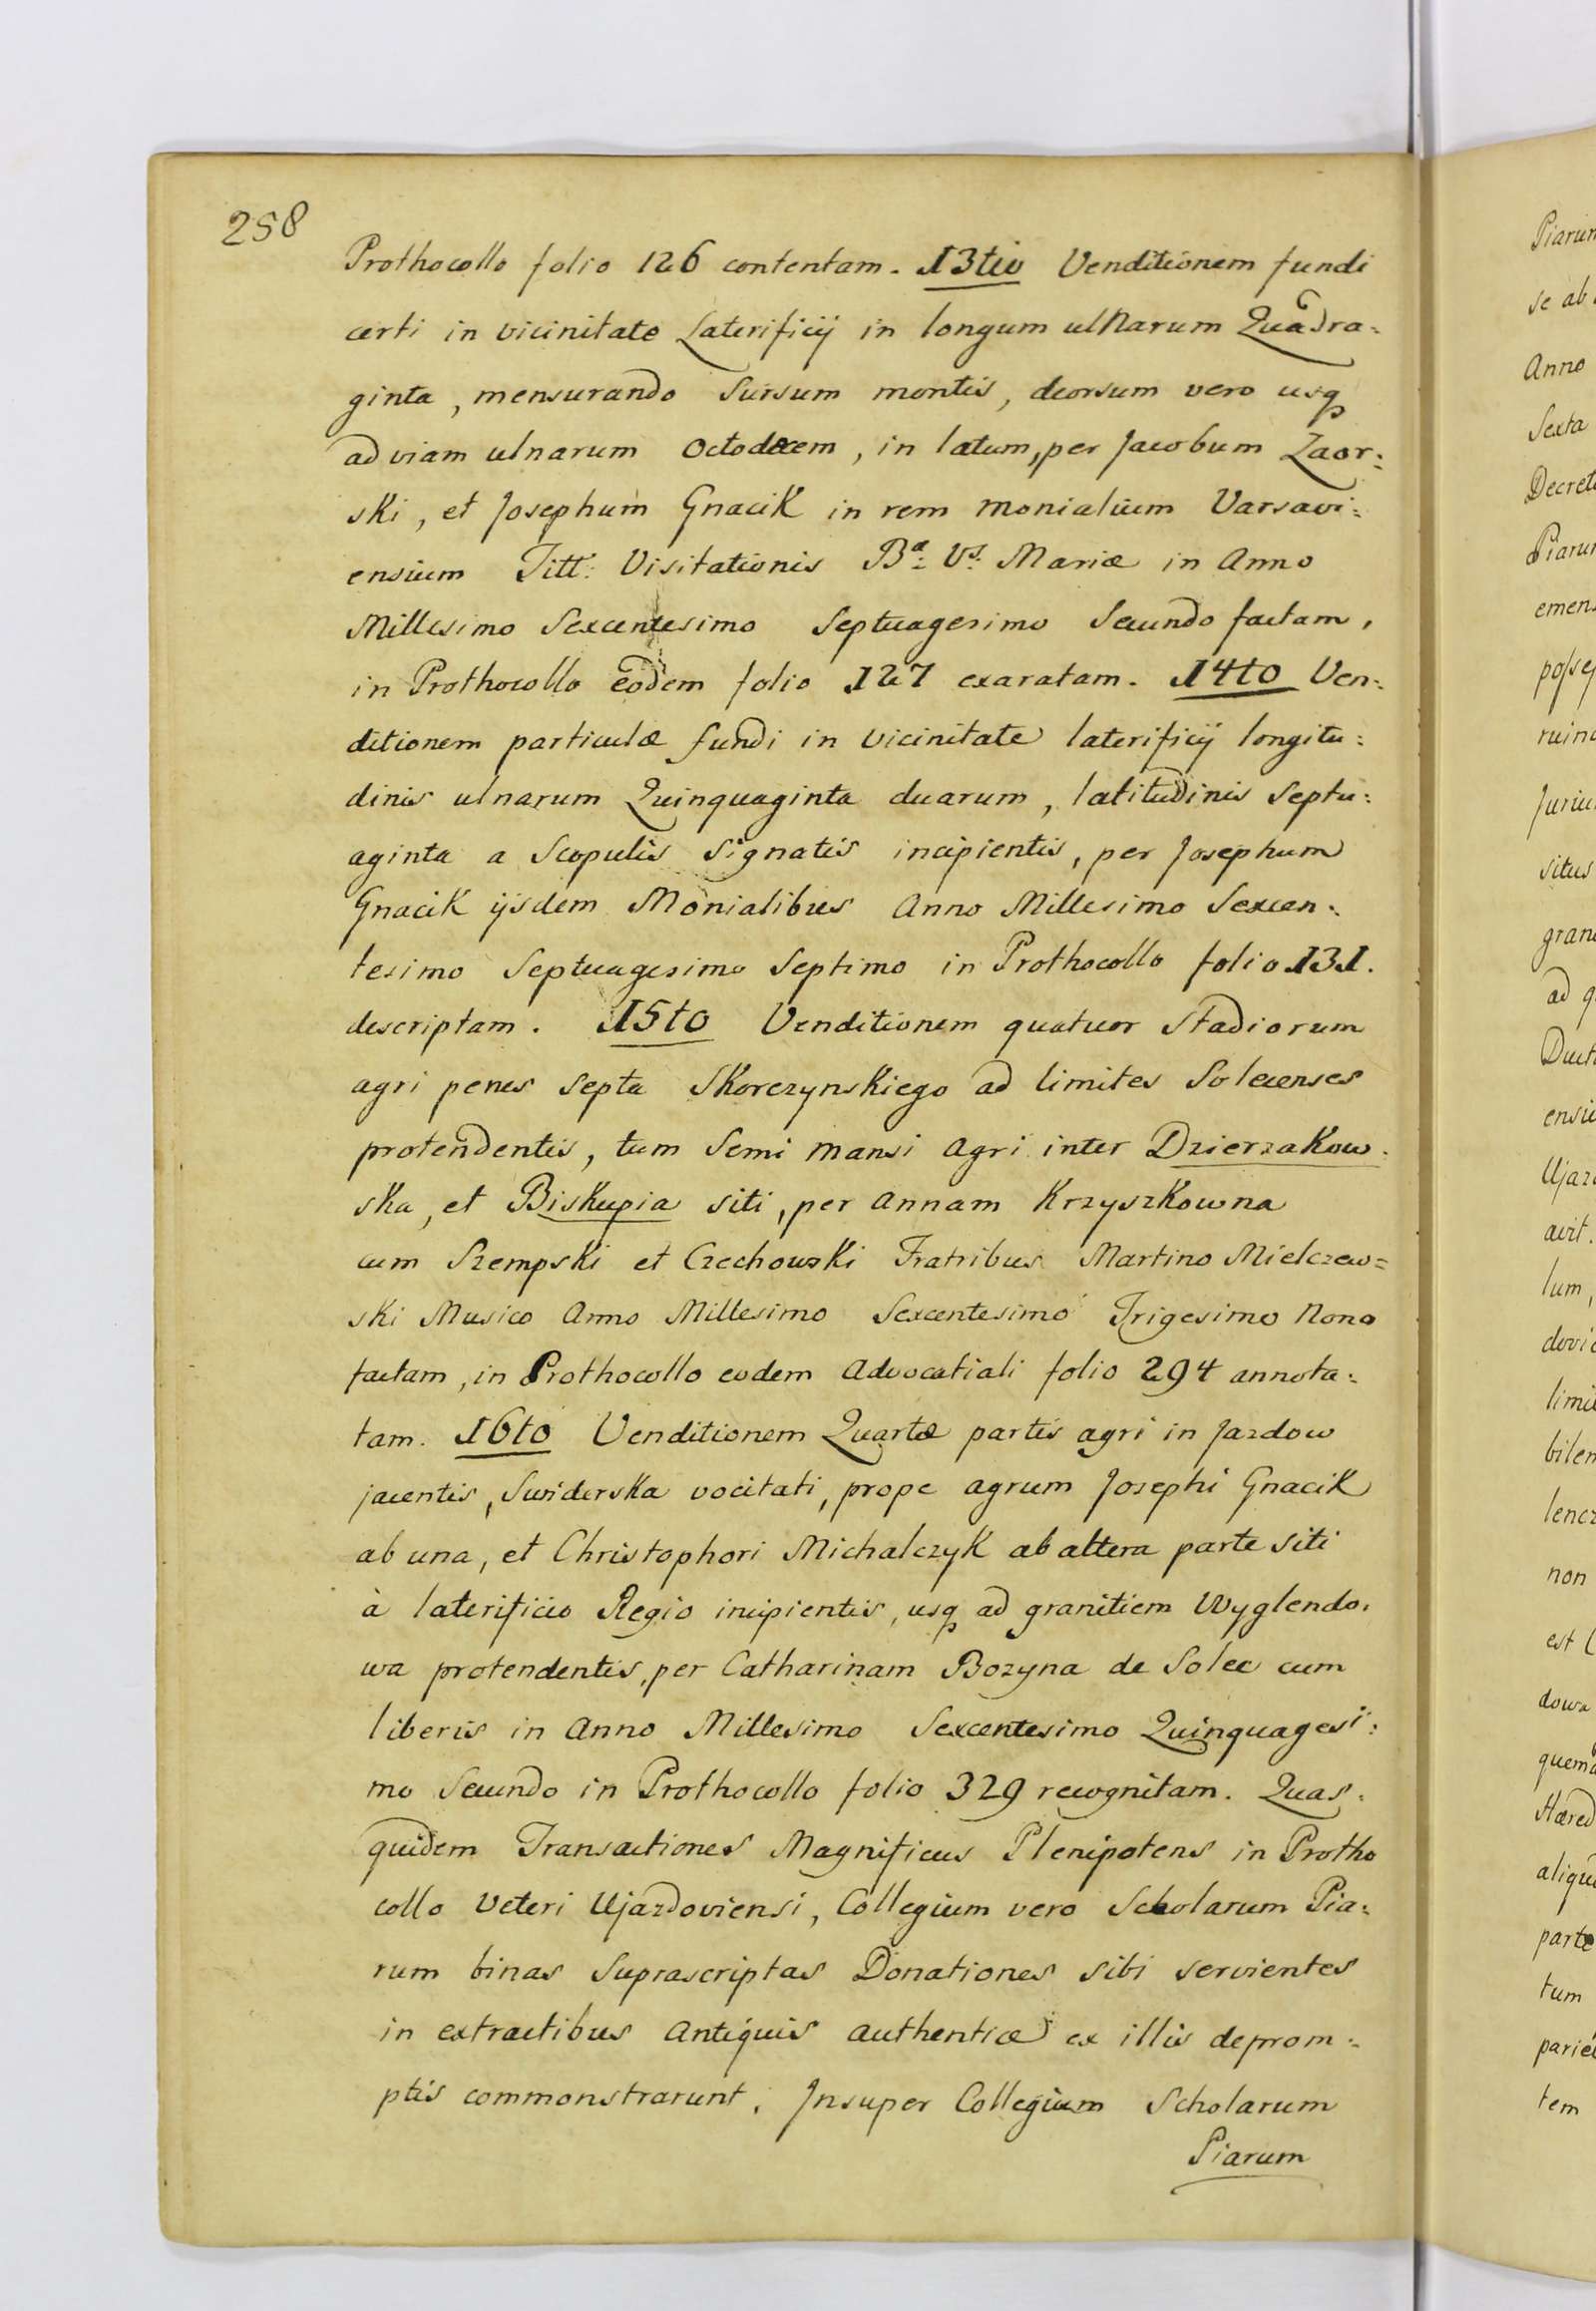 258
Prothocollo folio 126 contentam. 13tio Venditionem fundi
certi in vicinitate Laterificij in longum ulnarum Quadra:
ginta, mensurando Sursum montis, deorsum vero usq
ad viam ulnarum Octodecem, in latum, per Jacobum Zaor:
ski, et Josephum Gnacik in rem Monialium Varsavi:
ensium Titt: Visitationis Ba: Vs: Mariæ in Anno
Millesimo Sexcentesimo Septuagesimo Secundo factam,
in Prothocollo eodem folio 127 exaratam. 14to Ven:
ditionem particulæ fundi in vicinitate laterificij longitu:
dinis ulnarum Quinquaginta duarum, latitudinis Septu:
aginta a Scopulis Signatis incipientis, per Josephum
Gnacik ijsdem Monialibus Anno Millesimo Sexcen:
tesimo Septuagesimo Septimo in Prothocollo folio 131.
descriptam. 15to Venditionem quatuor Stadiorum
agri penes Septa Skorczynskiego ad limites Solecenses
protendentis, tum Semi mansi Agri inter Dzierzakow:
ska, et Biskupia siti, per Annam Krzyszkowna
cum Szempski et Czechowski Fratribus Martino Mielczew=
ski Musico Anno Millesimo Sexcentesimo Trigesimo Nono
factam, in Prothocollo eodem Advocatiali folio 294 annota:
tam. 16to Venditionem Quartæ partis agri in Jazdow
jacentis, Swiderska vocitati, prope agrum Josephi Gnacik
ab una, et Christophori Michalczyk ab altera parte siti
à laterificio Regio incipientis, usq ad granitiem Wyglendo:
wa protendentis, per Catharinam Bozyna de Solec cum
liberis in Anno Millesimo Sexcentesimo Quinquagesi:
mo Secundo in Prothocollo folio 329 recognitam. Quas:
quidem Transactiones Magnificus Plenipotens in Protho
collo Veteri Ujazdoviensi, Collegium vero Scholarum Pia:
rum binas Suprascriptas Donationes sibi servientes
in extractibus Antiquis Authenticæ ex illis deprom:
ptis commonstrarunt. Insuper Collegium Scholarum
Piarum
Anno
Sexta
situs
ad
lum,
non
est
dowa
parte
tum
tem